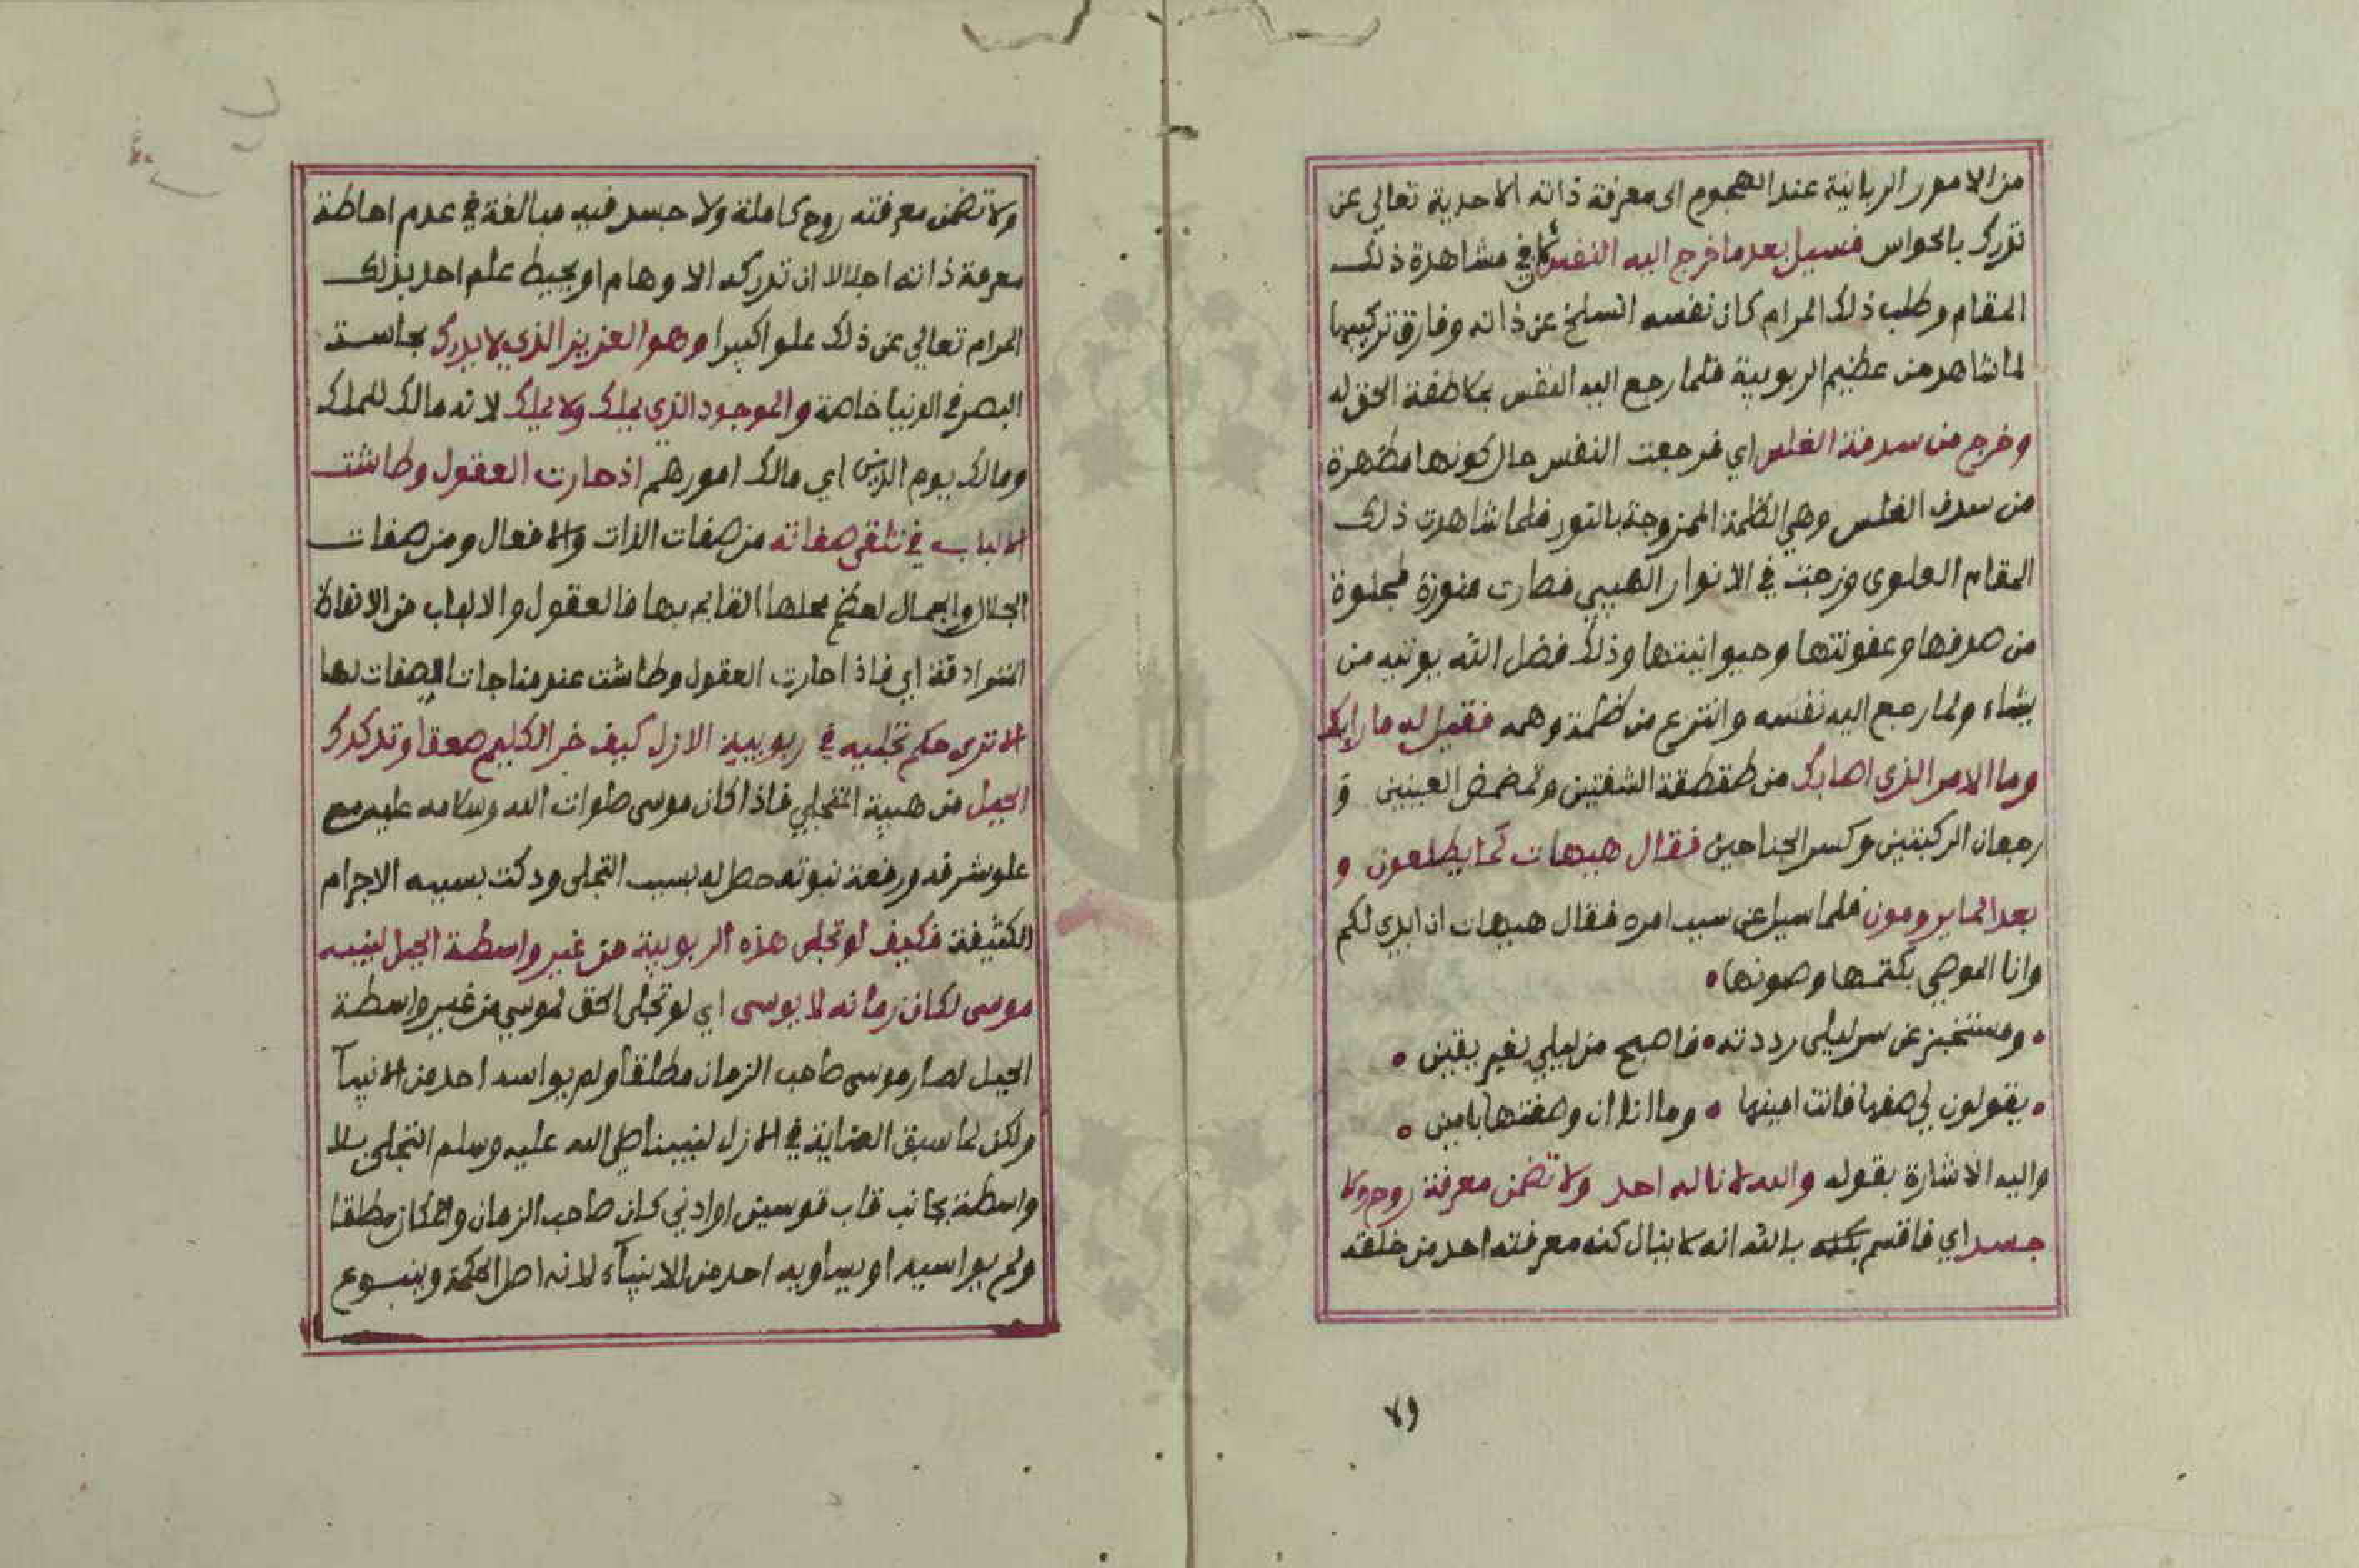 من الامور الربانية عند الهجوم الى معرفة ذاته الاحدية تعالى عن
تدرك بالحواس فسيل بعد ما خرج اليه النفس كما في مشاهدة ذلك
المقام وطلب ذلك المرام كان نفسه انسلخ عن ذاته وفارق تركيبها
لما شاهد من عظيم الربوبية فلما رجع اليه النفس بملاطفة الحق له
وخرج من سدفة الغلس اي فرجعت النفس حال كونها مطهرة
من سدف الغلس وهي الظلمة الممزوجة بالنور فلما شاهدت ذلك
المقام العلوى وزجت في الانوار الهيبي فصارت منورة مجلوة
من صرفها وعفونتها وحيوانيتها وذلك فضل الله يوتيه من
يشاء ولما رجع اليه نفسه وانتزع من ظلمة وهمه فقيل له ما رابك
وما الامر الذى اصابك من طقطقة الشفتين وتمضمض العينين و
رجعان الركبتين وكسر الجناحين فقال هيهات لما يطلعون و
بعدا لما يرومون فلما سيل عن سبب امره فقال هيهات ان ابدي لكم
وانا الموصى بكتمها وصونها
ومستخبر عن سر ليلى رددته فاصبح من ليلي بغير يقين
يقولون لي صفها فانت امينها وما انا ان وصفتها بامين
واليه الاشارة بقوله والله لا ناله احد ولا تضمن معرفة روح ولا
جسد اي فاقسم بالله انه لا ينال كنه معرفته احد من خلقه
ولا
ولا تضمن معرفته روح كاملة ولا جسد فيه مبالغة في عدم احاطة
معرفة ذاته اجلالا ان تدركه الاوهام او يحيط علم احد بذلك
المرام تعالي عن ذلك علوا كبيرا وهو العزيز الذي لا يدرك بحاسة
البصر في الدنيا خاصة والموجود الذي يملك ولا يملك لانه مالك للملك
ومالك يوم الدين اي مالك امورهم اذ حارت العقول وطاشت
الالباب في تلقى صفاته من صفات الذات والافعال ومن صفات
الجلال والجمال لعظم محلها القايم بها فالعقول والالباب من الالفاظ
المترادفة اي فاذا حارت العقول وطاشت عند مناجات الصفات لها
الا ترى حكم تجليه في ربوبية الازل كيف خر الكليم صعقا وتدكدك
الجبل من هيبة المتجلي فاذا كان موسى صلوات الله وسلامه عليه مع
علو شرفه ورفعة نبوته حصل له بسبب التجلى ودكت بسببه الاجرام
الكثيفة فكيف لو تجلى هذه الربوبية من غير واسطة الجبل لنبيه
موسى لكان زمانه لا يوسى اي لو تجلى الحق لموسي من غير واسطة
الجبل لصار موسى صاحب الزمان مطلقا ولم يواسه احد من الانبيآ
ولكن لما سبق العناية في الازل لنبينا صلى الله عليه وسلم التجلى بلا
واسطة بجانب قاب قوسين او ادني كان صاحب الزمان والمكان مطلقا
ولم يواسيه او يساويه احد من الانبيآء لانه اصل الحكمة وينبوع